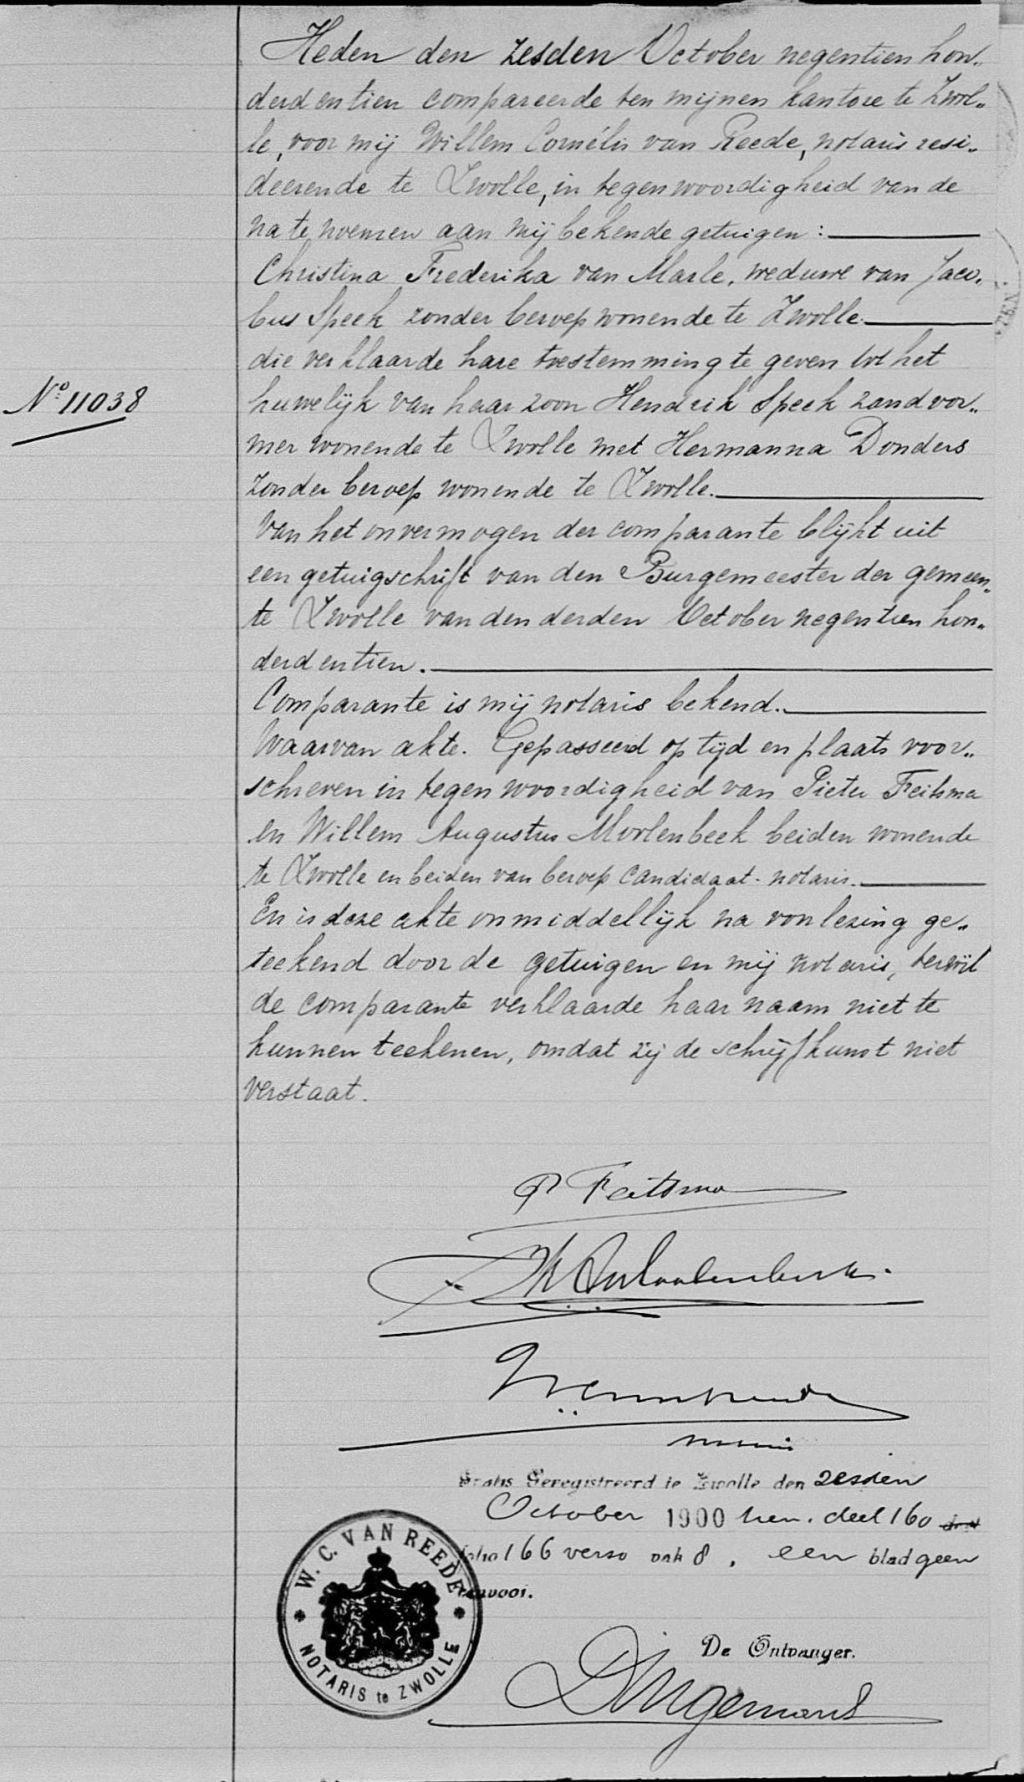 Heden den zesden October negentien hon„
derd en tien compareerde ten mijnen kantore te Zwol„
le, voor mij Willem Cornélis van Reede, notaris resi„
deerende te Zwolle, in tegenwoordigheid van de
na te noemen aan mij bekende getuigen:
Christina Frederika van Marle, weduwe van Jaco„
bus Speek zonder beroep wonende te Zwolle
die verklaarde hare toestemming te geven tot het
No 11038
huwelijk van haar zoon Hendrik Speek zandvor„
mer wonende te Zwolle met Hermanna Donders
zonder beroep wonende te Zwolle.
Van het onvermogen der comparante blijkt uit
een getuigschrift van den Burgemeester der gemeen„
te Zwolle van den derden October negentien hon„
derd en tien.
Comparante is mij notaris bekend.
Waarvan akte. Gepasseerd op tijd en plaats voor„
schreven in tegenwoordigheid van Pieter Feitsma
en Willem Augustus Morlenbeek beiden wonende
te Zwolle en beiden van beroep candidaat-notaris.
En is deze akte onmiddellijk na voorlezing ge„
teekend door de getuigen en mij notaris, terwijl
de comparante verklaarde haar naam niet te
kunnen teekenen, omdat zij de schrijfkunst niet
verstaat.
P Feitsma
notaris
Gratis Geregistreerd te Zwolle den zesden
October 1900 tien. deel 160
folio 166 verso vak 8, een blad geen
renvooi.
De Ontvanger.
Dingemans
W. C. VAN REEDE
NOTARIS te ZWOLLE